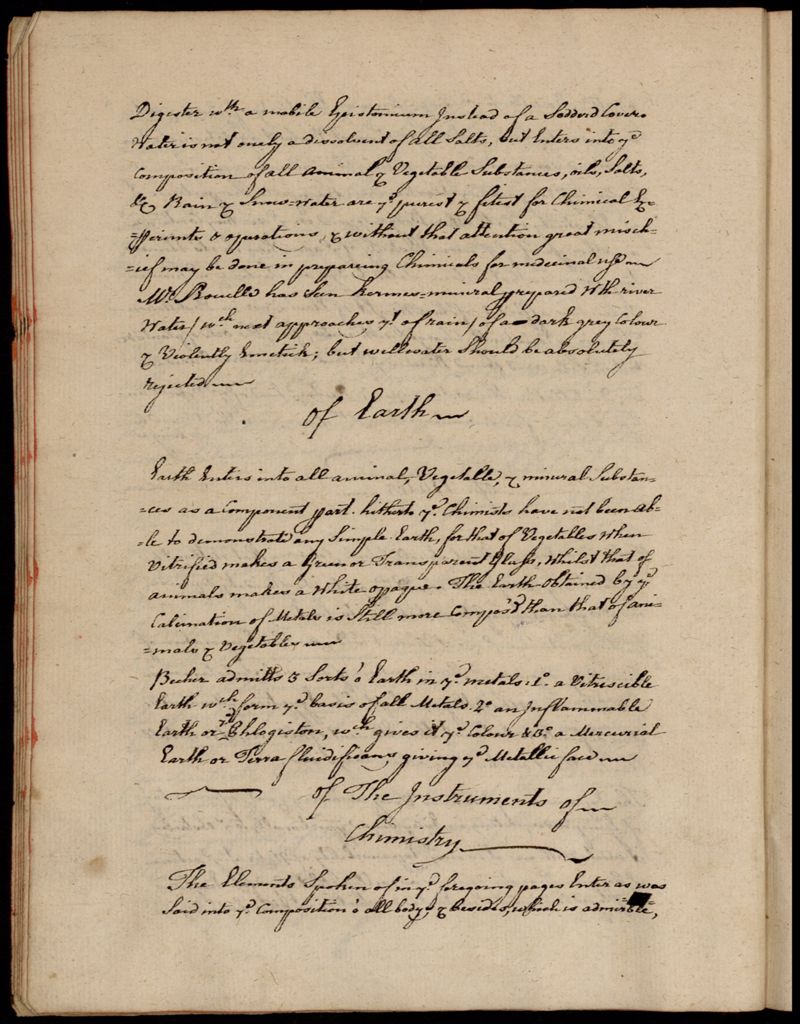 Digester wth a mobile Epistonium Instead of a Soddord Cover.
Water is not onely a dissolvent of all Salts, but Enters into ye
Composition of all animal & Vegetable Substances, oils, Salts,
&c Rain & Snow=Water are ye purest & fitest for Chimical Ex=
=pperimts & opurations, & without that attention great misch=
=ief may be done in preparing Chimicals for medicinal use
Mr. Rouelle has Seen Kermes=mineral prepared Wth river
Water / wch most approaches yt of rain / of a dark grey Colour
& Violently Emetick; but well water Should be absolutely
rejected
Of Earth
Earth Enters into all animal, Vegetable, & mineral Substan=
=ces as a Component part. hitherto ye Chimists have not been ab=
=le to demonstrate any Simple Earth, for that of Vegetables When
Vitrified makes a Green or Transparent Glass, Whilst that of
animals makes a White opaque. The Earth obtained by ye
Calcination of Metals is Still more Compos'd than that of ani=
=mals & Vegetables
Becher admitts 3 Sorts o' Earth in ye metals. 1o. a Vitrescible
Earth wch form ye basis of all Metals. 2o an Inflammable
Earth or ye Phlogiston, wch gives it ye Colour & 3o. a Mercurial
Earth or Terra fluidificans giving ye Metallic face
Of The Instruments of
Chimistry
The Elements Spoken of in ye foregoing pages Enter as was
Said into ye Composition o' all bodys, & besides, which is admirable,